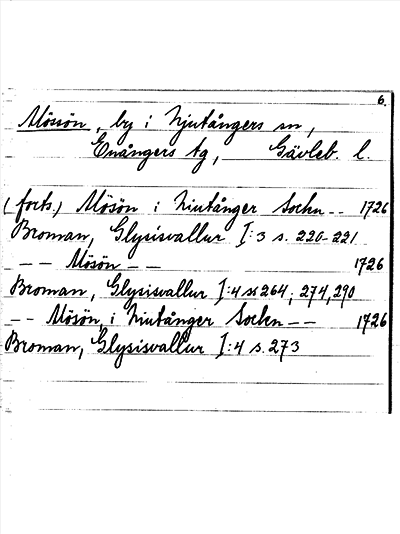 6.
Mössön, by i Njutångers sn,
Enångers tg, Gävleb. l.
(forts.) Mösön i Niutånger Sockn -- 1726
Broman, Glysisvallur I:3 s. 220-221
-- Mösön -- 1726
Broman, Glysisvallur I:4 ss 264, 274, 290
-- Mösön i Niutånger Sockn -- 1726
Broman, Glysisvallur I:4 s. 273